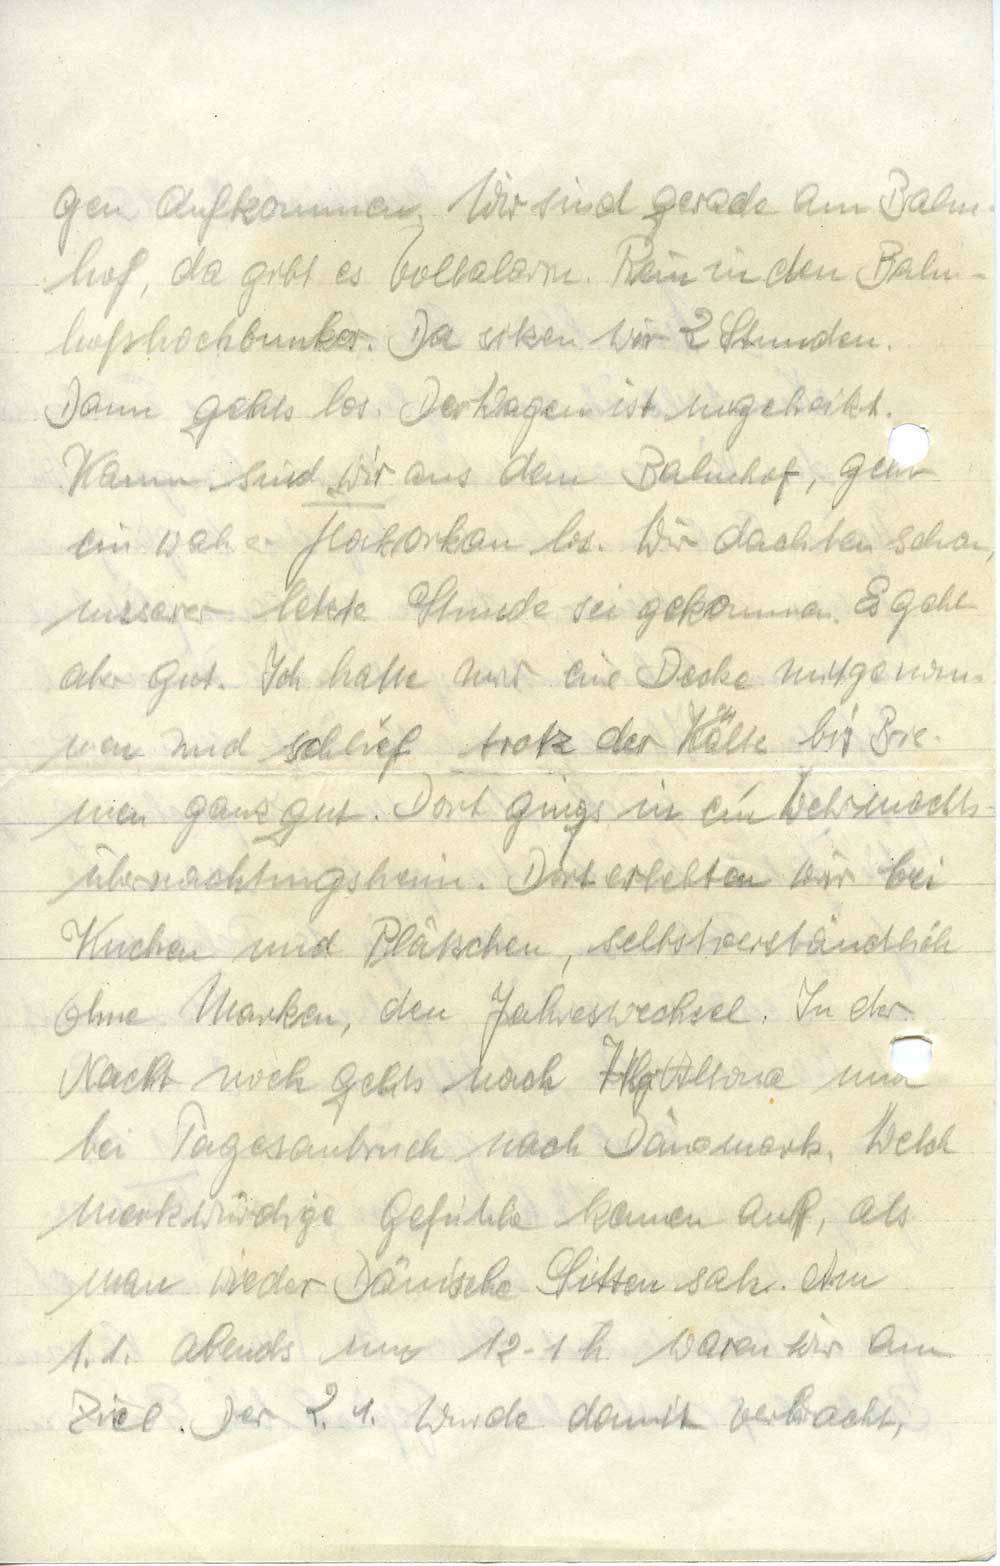 gen aufkommen. Wir sind gerade am Bahn-
hof, da gibt es Vollalarm. Rein in den Bahn-
hofshochbunker. Da sitzen wir 2 Stunden.
Dann gehts los. Der Wagen ist ungeheizt.
Kaum sind wir aus dem Bahnhof, geht
ein wahrer Flakorkan los. Wir dachten schon,
unserer letzte Stunde sei gekommen. Es geht
aber gut. Ich hatte mir eine Decke mitgenom-
men und schlief trotz der Kälte bis Bre-
men ganz gut. Dort gings in ein Wehrmachts-
übernachtungsheim. Dort erlebten wir bei
Kuchen und Plätschen, selbstverständlich
ohne Marken, den Jahreswechsel. In der
Nacht noch gehts nach Altona und
bei Tagesanbruch nach Dänemark. Welch
merkwürdige Gefühle kamen auf, als
man wieder Dänische Sitten sah. Am
1.1. abends um 12-1 h waren wir am
Ziel. Der 2.1. wurde damit verbracht,